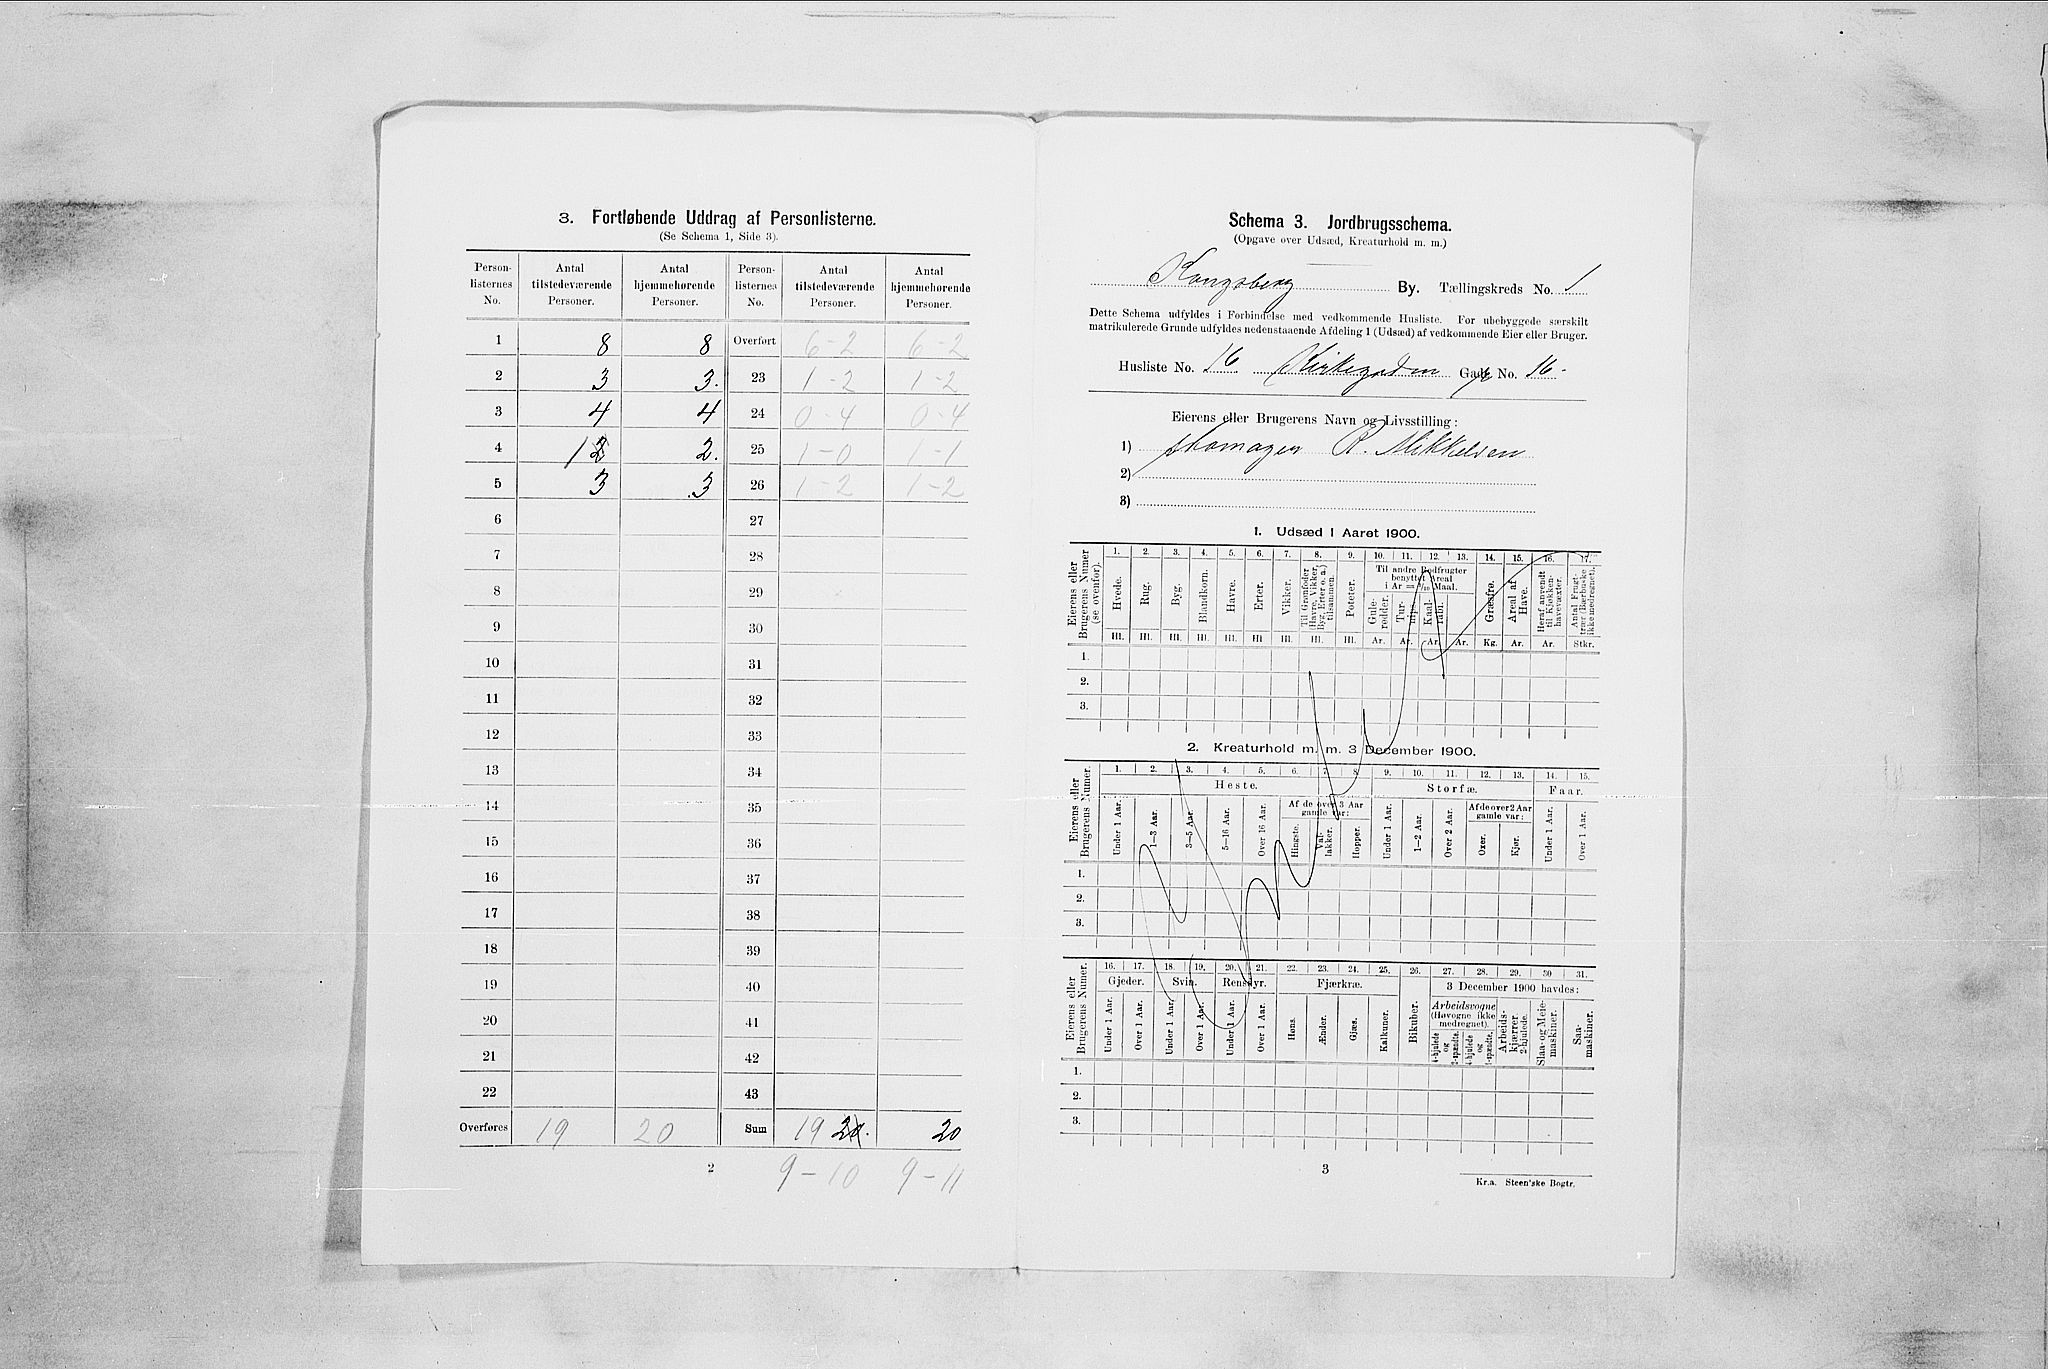 3. Fortløbende Uddrag af Personlisterne.
(Se Schema 1, Side 3).
Person-listernes No. Antal tilstedeværende Personer. Antal hjemmehørende Personer. Person-listernes No. Antal tilstedeværende Personer. Antal hjemmehørende Personer.
1 8 8 Overført 6-2 6-2
2 3 3. 23 1-2 1-2
3 4 4 24 0-4 0-4
4 1 2 2. 25 1-0 1-1
5 3 3 26 1-2 1-2
6 27
7 28
8 29
9 30
10 31
11 32
12 33
13 34
14 35
15 36
16 37
17 38
18 39
19 40
20 41
21 42
22 43
Overføres 19 20 Sum 19 20. 20
9-10 9-11
2
Schema 3. Jordbrugsschema.
(Opgave over Udsæd, Kreaturhold m. m.)
Kongsberg By. Tællingskreds No. 1
Dette Schema udfyldes i Forbindelse med vedkommende Husliste. For ubebyggede særskilt
matrikulerede Grunde udfyldes nedenstaaende Afdeling 1 (Udsæd) af vedkommende Eier eller Bruger.
Husliste No. 16 Kirkegaden Gade No. 16.
Eierens eller Brugerens Navn og Livsstilling:
1) Skomager R. Mikkelsen
2)
3)
1. Udsæd i Aaret 1900.
Eierens eller Brugerens Numer (se ovenfor).
1. 2. 3. 4. 5. 6. 7. 8. 9. 10. 11. 12. 13. 14. 15. 16. 17.
Hvede. Rug. Byg. Blandkorn. Havre. Erter. Vikker. Til Grønfoder (Havre, Vikker, Byg, Erter o. a.) tilsammen. Poteter.
Til andre Rodfrugter benyttet Areal i Ar = 1/10 Maal.
Gule-rødder. Tur-nips. Kaal-rabi. Græsfrø. Areal af Have. Heraf anvendt til Kjøkken-havevæxter. Antal Frugt-trær (Bærbuske ikke medregnet).
Hl. Hl. Hl. Hl. Hl. Hl. Hl. Hl. Hl. Ar. Ar. Ar. Ar. Kg. Ar. Ar. Stkr.
1.
2.
3.
2. Kreaturhold m. m. 3 December 1900.
Eierens eller Brugerens Numer.
1. 2. 3. 4. 5. 6. 7. 8. 9. 10. 11. 12. 13. 14. 15.
Heste. Storfæ. Faar.
Af de over 3 Aar gamle var: Af de over 2 Aar gamle var:
Under 1 Aar. 1—3 Aar. 3—5 Aar. 5—16 Aar. Over 16 Aar. Hingste. Val-lakker. Hopper. Under 1 Aar. 1—2 Aar. Over 2 Aar. Oxer. Kjør. Under 1 Aar. Over 1 Aar.
1.
2.
3.
Eierens eller Brugerens Numer.
16. 17. 18. 19. 20. 21. 22. 23. 24. 25. 26. 27. 28. 29. 30 31.
Gjeder. Svin. Rensdyr. Fjærkræ. Bikuber. 3 December 1900 havdes:
Arbeidsvogne (Høvogne ikke medregnet).
Under 1 Aar. Over 1 Aar. Under 1 Aar. Over 1 Aar. Under 1 Aar. Over 1 Aar. Høns. Ænder. Gjæs. Kalkuner. 4-hjulede og 2-spændte. 4-hjulede og 1-spændte. Arbeids-kjærrer, 2-hjulede. Slaa- og Meie-maskiner. Saa-maskiner.
1.
2.
3.
3
Kr.a. Steen'ske Bogtr.